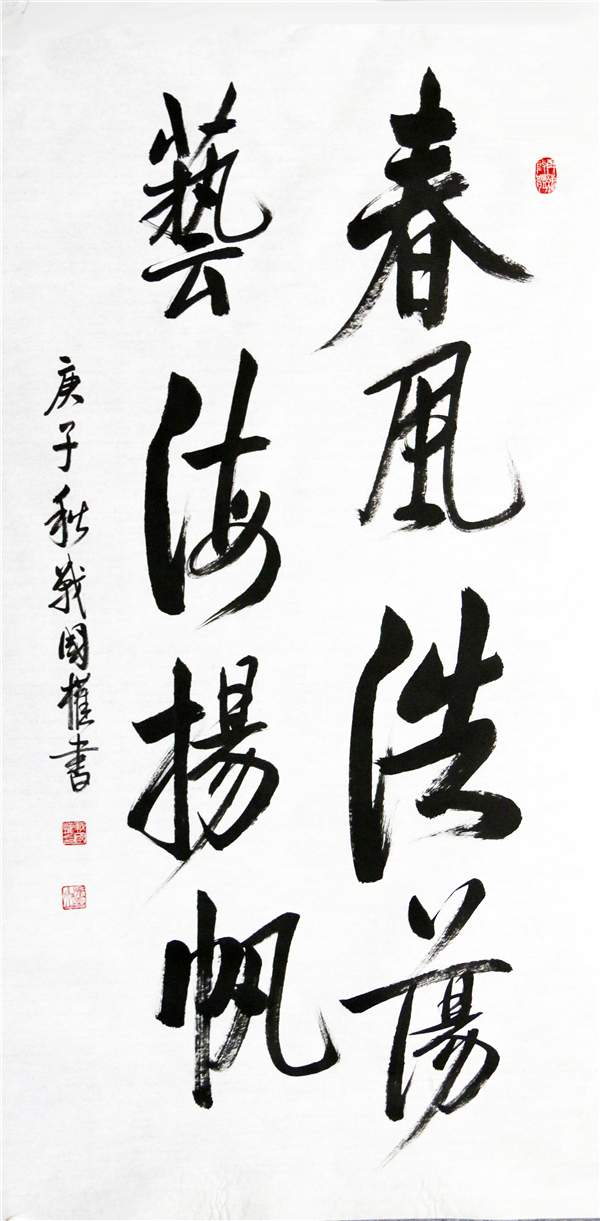 春風浩蕩
藝海揚帆
庚子秋戰國權書